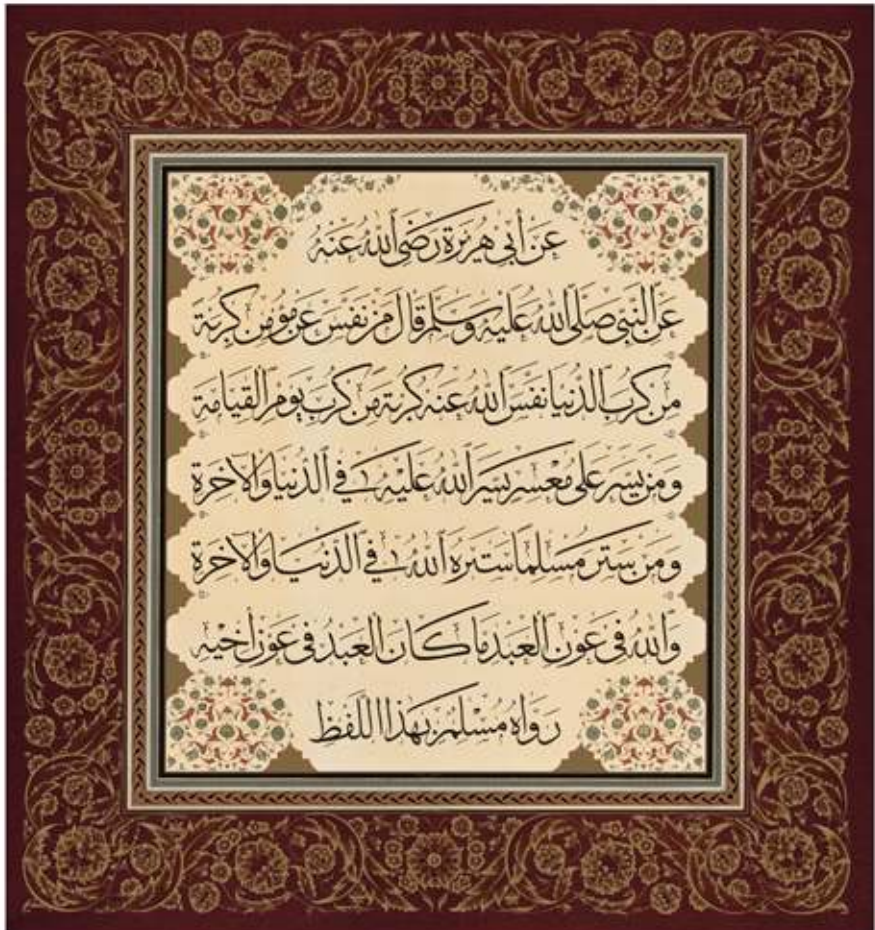 عَنْ أَبِي هُرَيْرَةَ رَضِيَ اللهُ عَنْهُ
عَنِ النَّبِيِّ صَلَّى اللهُ عَلَيْهِ وَسَلَّمَ قَالَ مَنْ نَفَّسَ عَنْ مُؤْمِنٍ كُرْبَةً
مِنْ كُرَبِ الدُّنْيَا نَفَّسَ اللهُ عَنْهُ كُرْبَةً مِنْ كُرَبِ يَوْمِ الْقِيَامَةِ
وَمَنْ يَسَّرَ عَلَى مُعْسِرٍ يَسَّرَ اللهُ عَلَيْهِ فِي الدُّنْيَا وَالْآخِرَةِ
وَمَنْ سَتَرَ مُسْلِمًا سَتَرَهُ اللهُ فِي الدُّنْيَا وَالْآخِرَةِ
وَاللهُ فِي عَوْنِ الْعَبْدِ مَا كَانَ الْعَبْدُ فِي عَوْنِ أَخِيهِ
رَوَاهُ مُسْلِمٌ بِهَذَا اللَّفْظِ